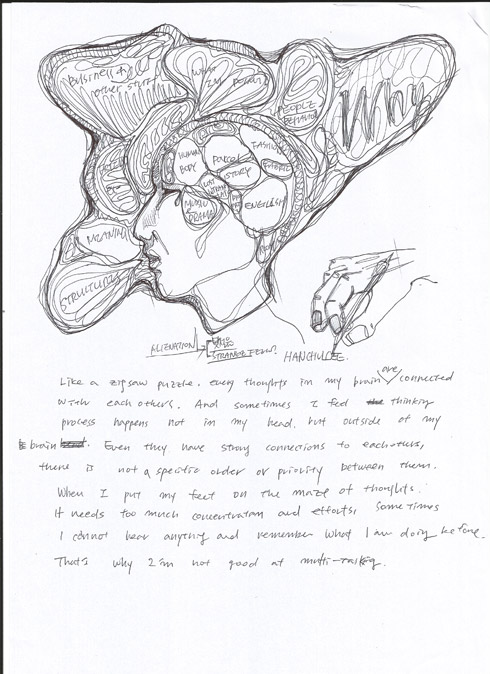 BUSINESS &
other stuff
WHAT
I'M
PEOPLE
BEHAVIOR
Why
HUMAN
BODY
FASHION
STORY
MUSIC
DRAMA
ENGLISH
MEANING
STRUCTURE
ALIENATION
STRANGE FEW?
HANCHUL LEE.
Like a zigsaw puzzle. every thoughts in my brain are connected
with each others. And sometimes I feel the thinking
process happens not in my head. but outside of my
brain. Even they have strong connections to eachothers,
there is not a specific order or priority between them.
When I put my feet on the maze of thoughts.
It needs too much concentration and efforts. Some times
I cannot hear anything and remember what I am doing before.
That's why I'm not good at multi-tasking.